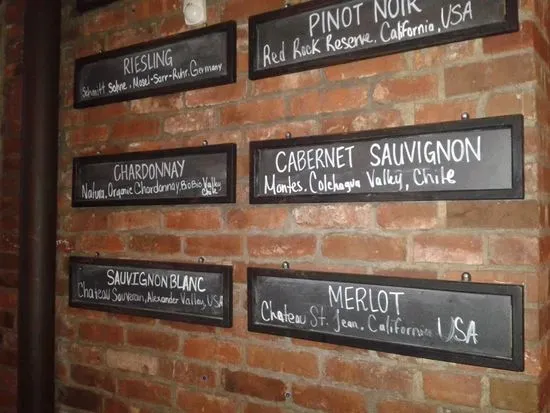 RIESLING
Schmitt Sohne, Mosel-Sarr-Ruhr, Germany
PINOT NOIR
Red Rock Reserve, California, USA
CHARDONNAY
Natura, Organic Chardonnay, BioBio Valley
Chile
CABERNET SAUVIGNON
Montes, Colchagua Valley, Chile
SAUVIGNON BLANC
Chateau Souverain, Alexander Valley, USA
MERLOT
Chateau St. Jean, California USA